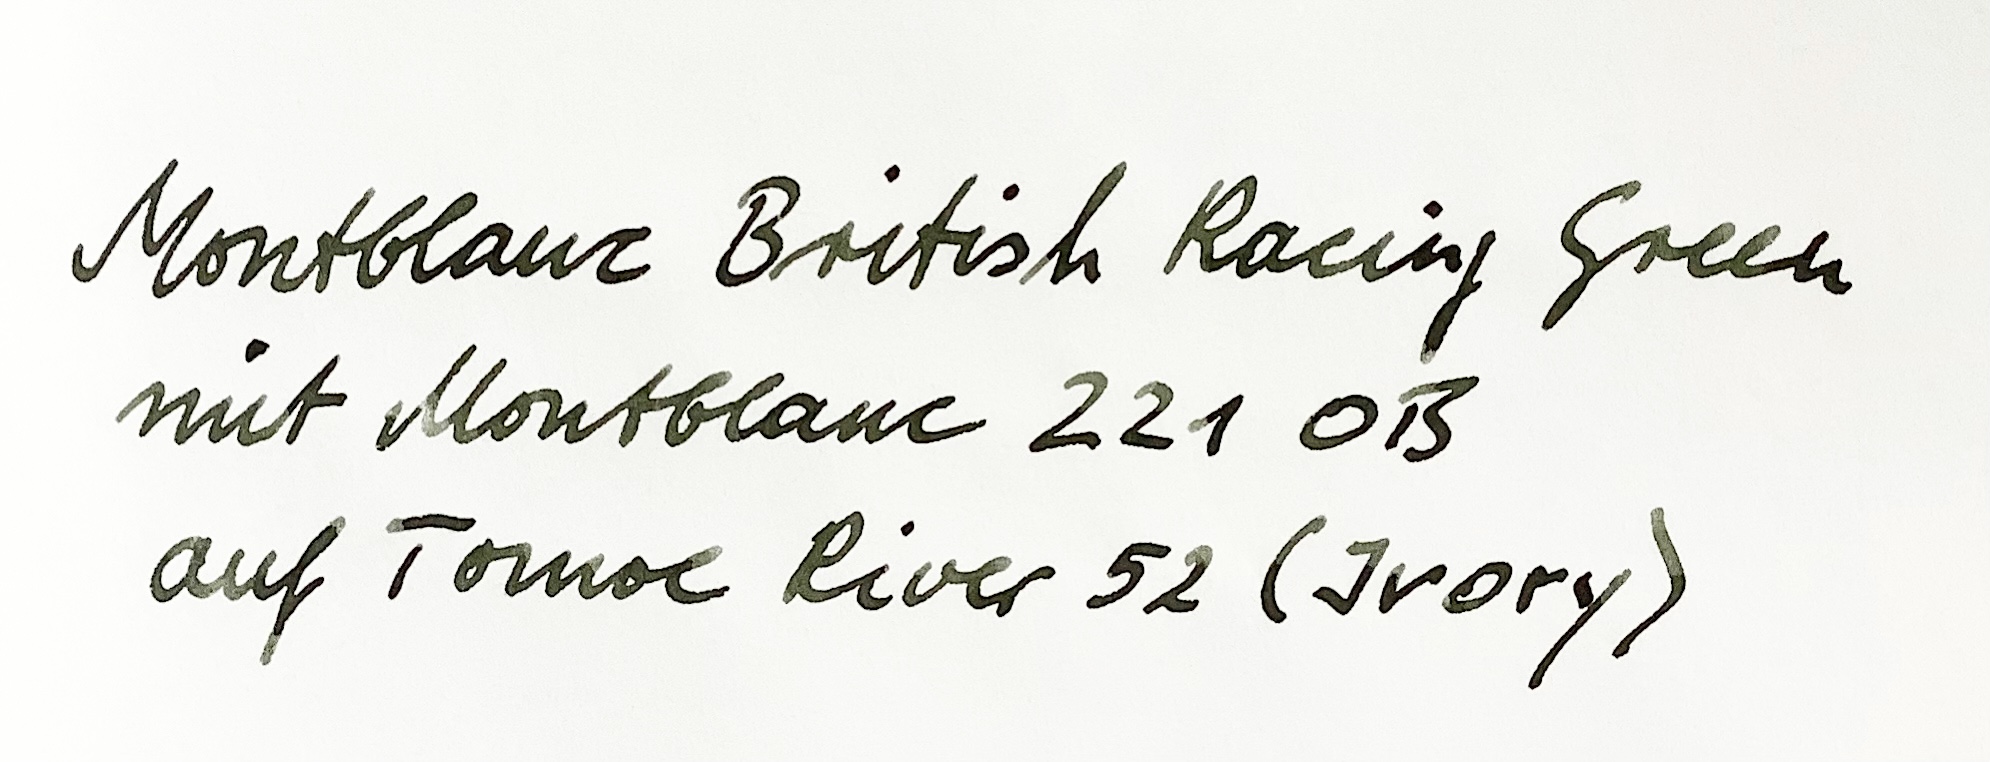 Montblanc British Racing Green
mit Montblanc 221 OB
auf Tomoe River 52 (Ivory)